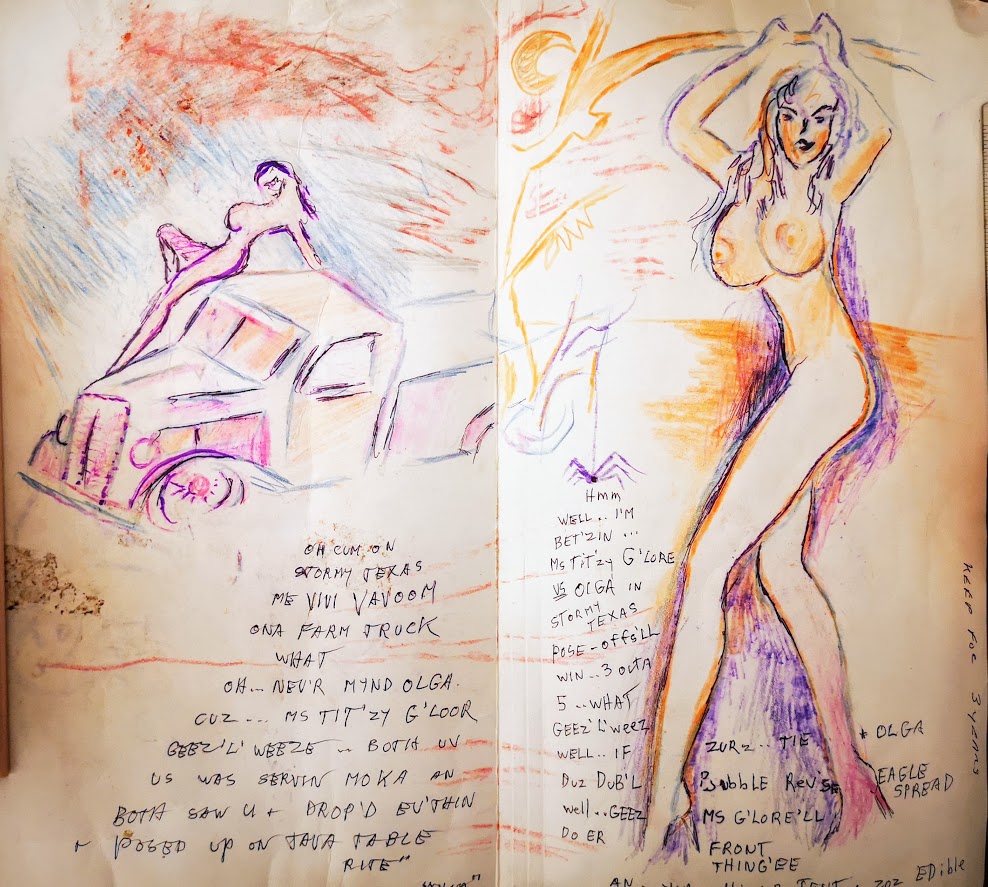 OH CUM ON
STORMY TEXAS
ME VIVI VAVOOM
ONA FARM TRUCK
WHAT
OH... NEV'R MYND OLGA.
CUZ... MS TIT'ZY G'LOOR
GEEZ'L' WEEZE .. BOTH UV
US WAS SERVIN MOKA AN
BOTH SAW U + DROP'D EV'THIN
+ POSED UP ON JAVA TABLE
RITE"
Hmm
WELL.. I'M
BET'ZIN ...
Ms TIT'zy G'LORE
VS OLGA IN
STORMY
TEXAS
POSE-OFFS'LL
WIN..3 OUTA
5..WHAT
GEEZ'L'weez
WELL.. IF
Duz DUB'L
well..GEEZ
DO ER
ZUR'z.. TIE
Bubble REV'SE
MS G'LORE'LL
FRONT
THING'EE
* OLGA
EAGLE
SPREAD
EDible
KEEP FOR 3 YEARS